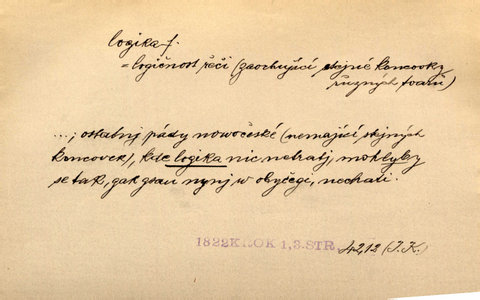 logika f.
= logičnost řeči (zaochující stejné koncovky
různých tvarů)
...; ostatnj pády nowočeské (nemající stejných
koncovek), kde logika nic netratj, mohlyby
se tak, gak gsau nynj w obyčegi, nechati.
1822 KROK 1,3. STR. 42,12 (J.K.)